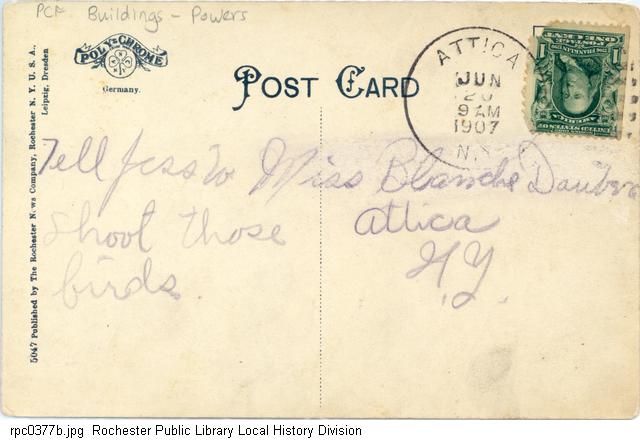 PCF Buildings - Powers
POLY-CHROME
Germany.
POST CARD
ATTICA
JUN
20
9 AM
1907
N.Y.
Tell Jess to
shoot those
birds
Miss Blanche
Attica
N.Y.
5047 Published by The Rochester News Company, Rochester N. Y. U. S. A.,
Leipzig, Dresden
POSTAGE
ONE CENT
1 1
FRANKLIN
UNITED STATES OF
AMERICA
rpc0377b.jpg Rochester Public Library Local History Division